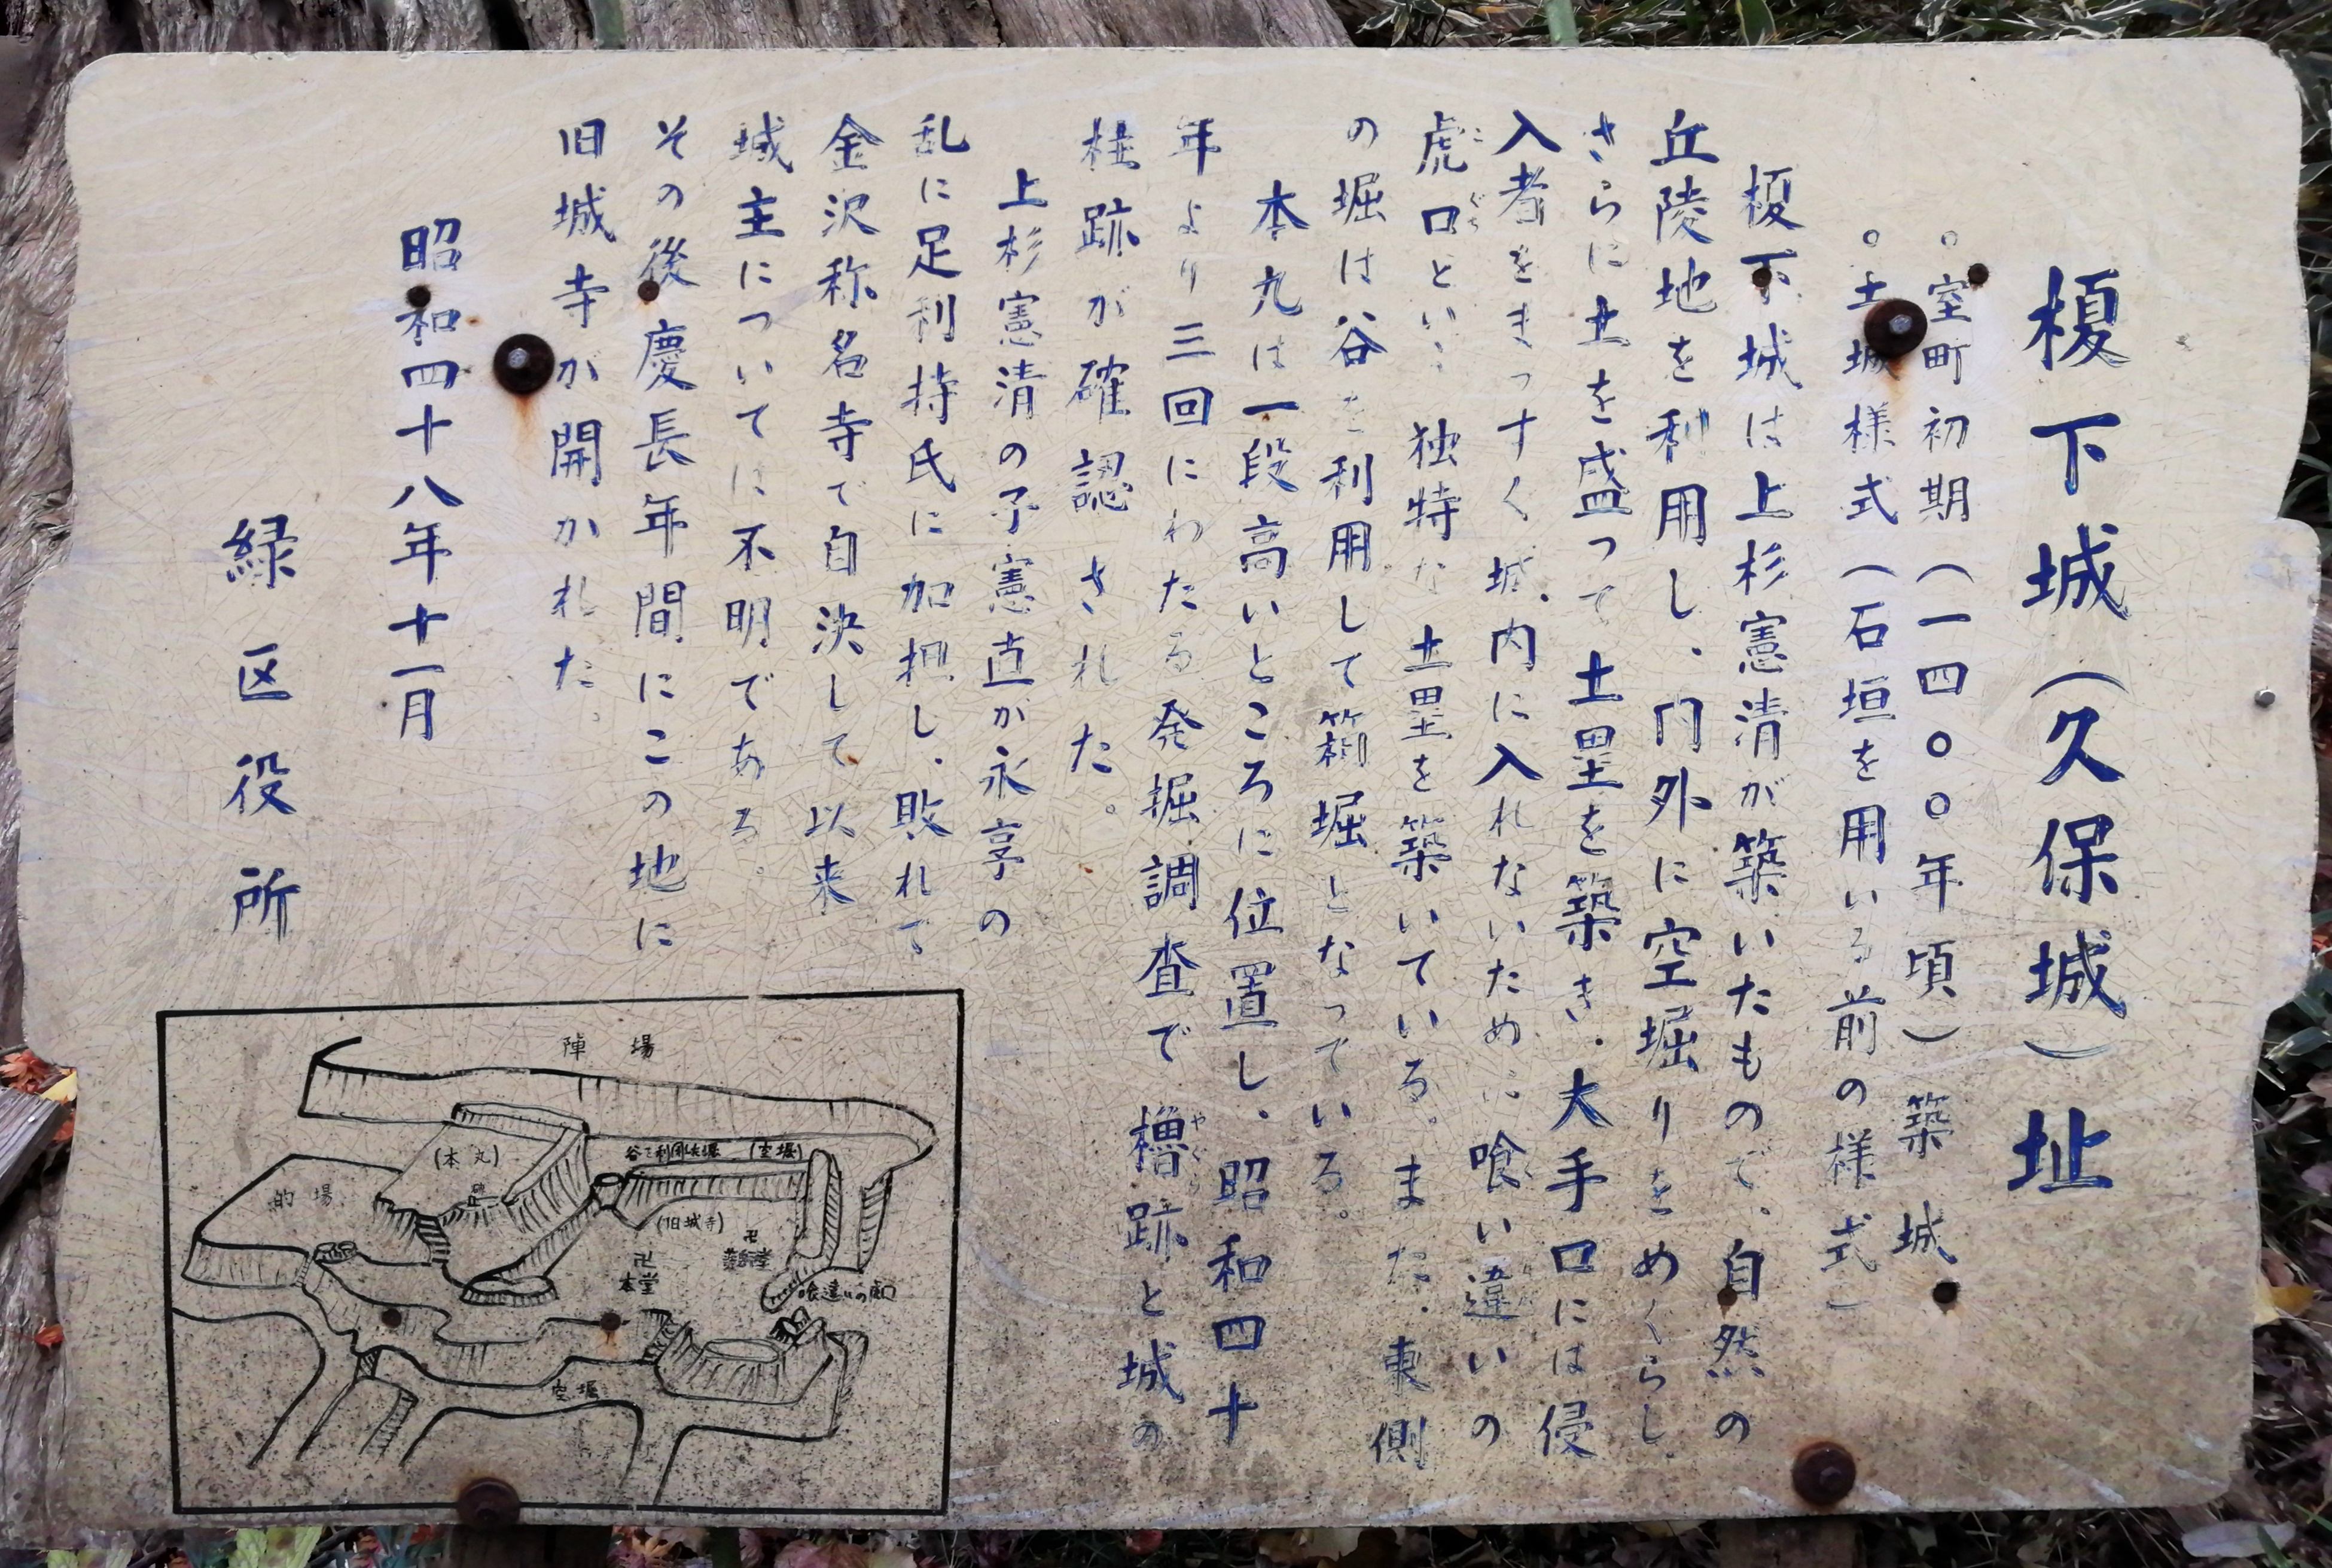 榎下城（久保城）址
。室町初期（一四〇〇年頃）築城
。土城様式（石垣を用いる前の様式）
榎下城は上杉憲清が築いたもので、自然の
丘陵地を利用し、門外に空堀りをめぐらし、
さらに土を盛って土塁を築き、大手口には侵
入者をまっすぐ城内に入れないために喰い違いの
虎口という独特な土塁を築いている。また、東側
の堀は谷を利用して箱堀となっている。
本丸は一段高いところに位置し、昭和四十
年より三回にわたる発掘調査で櫓跡と城の
柱跡が確認された。
上杉憲清の子憲直が永享の
乱に足利持氏に加担し、敗れて
金沢称名寺で自決して以来
城主については不明である。
その後慶長年間にこの地に
旧城寺が開かれた。
昭和四十八年十一月
緑区役所
陣場
(本丸)
的場
谷を利用した堀 (空堀)
(旧城寺)
卍
卍
本堂
喰違いの虎口
空堀